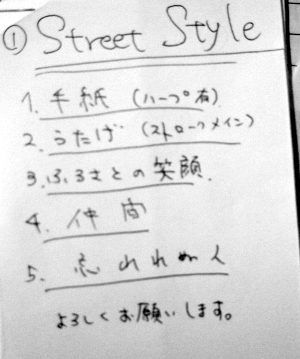 ① Street Style
1. 手紙 (ハープ有)
2. うたげ (ストロークメイン)
3. ふるさとの笑顔.
4. 仲間
5. 忘れれぬ人
よろしくお願いします。